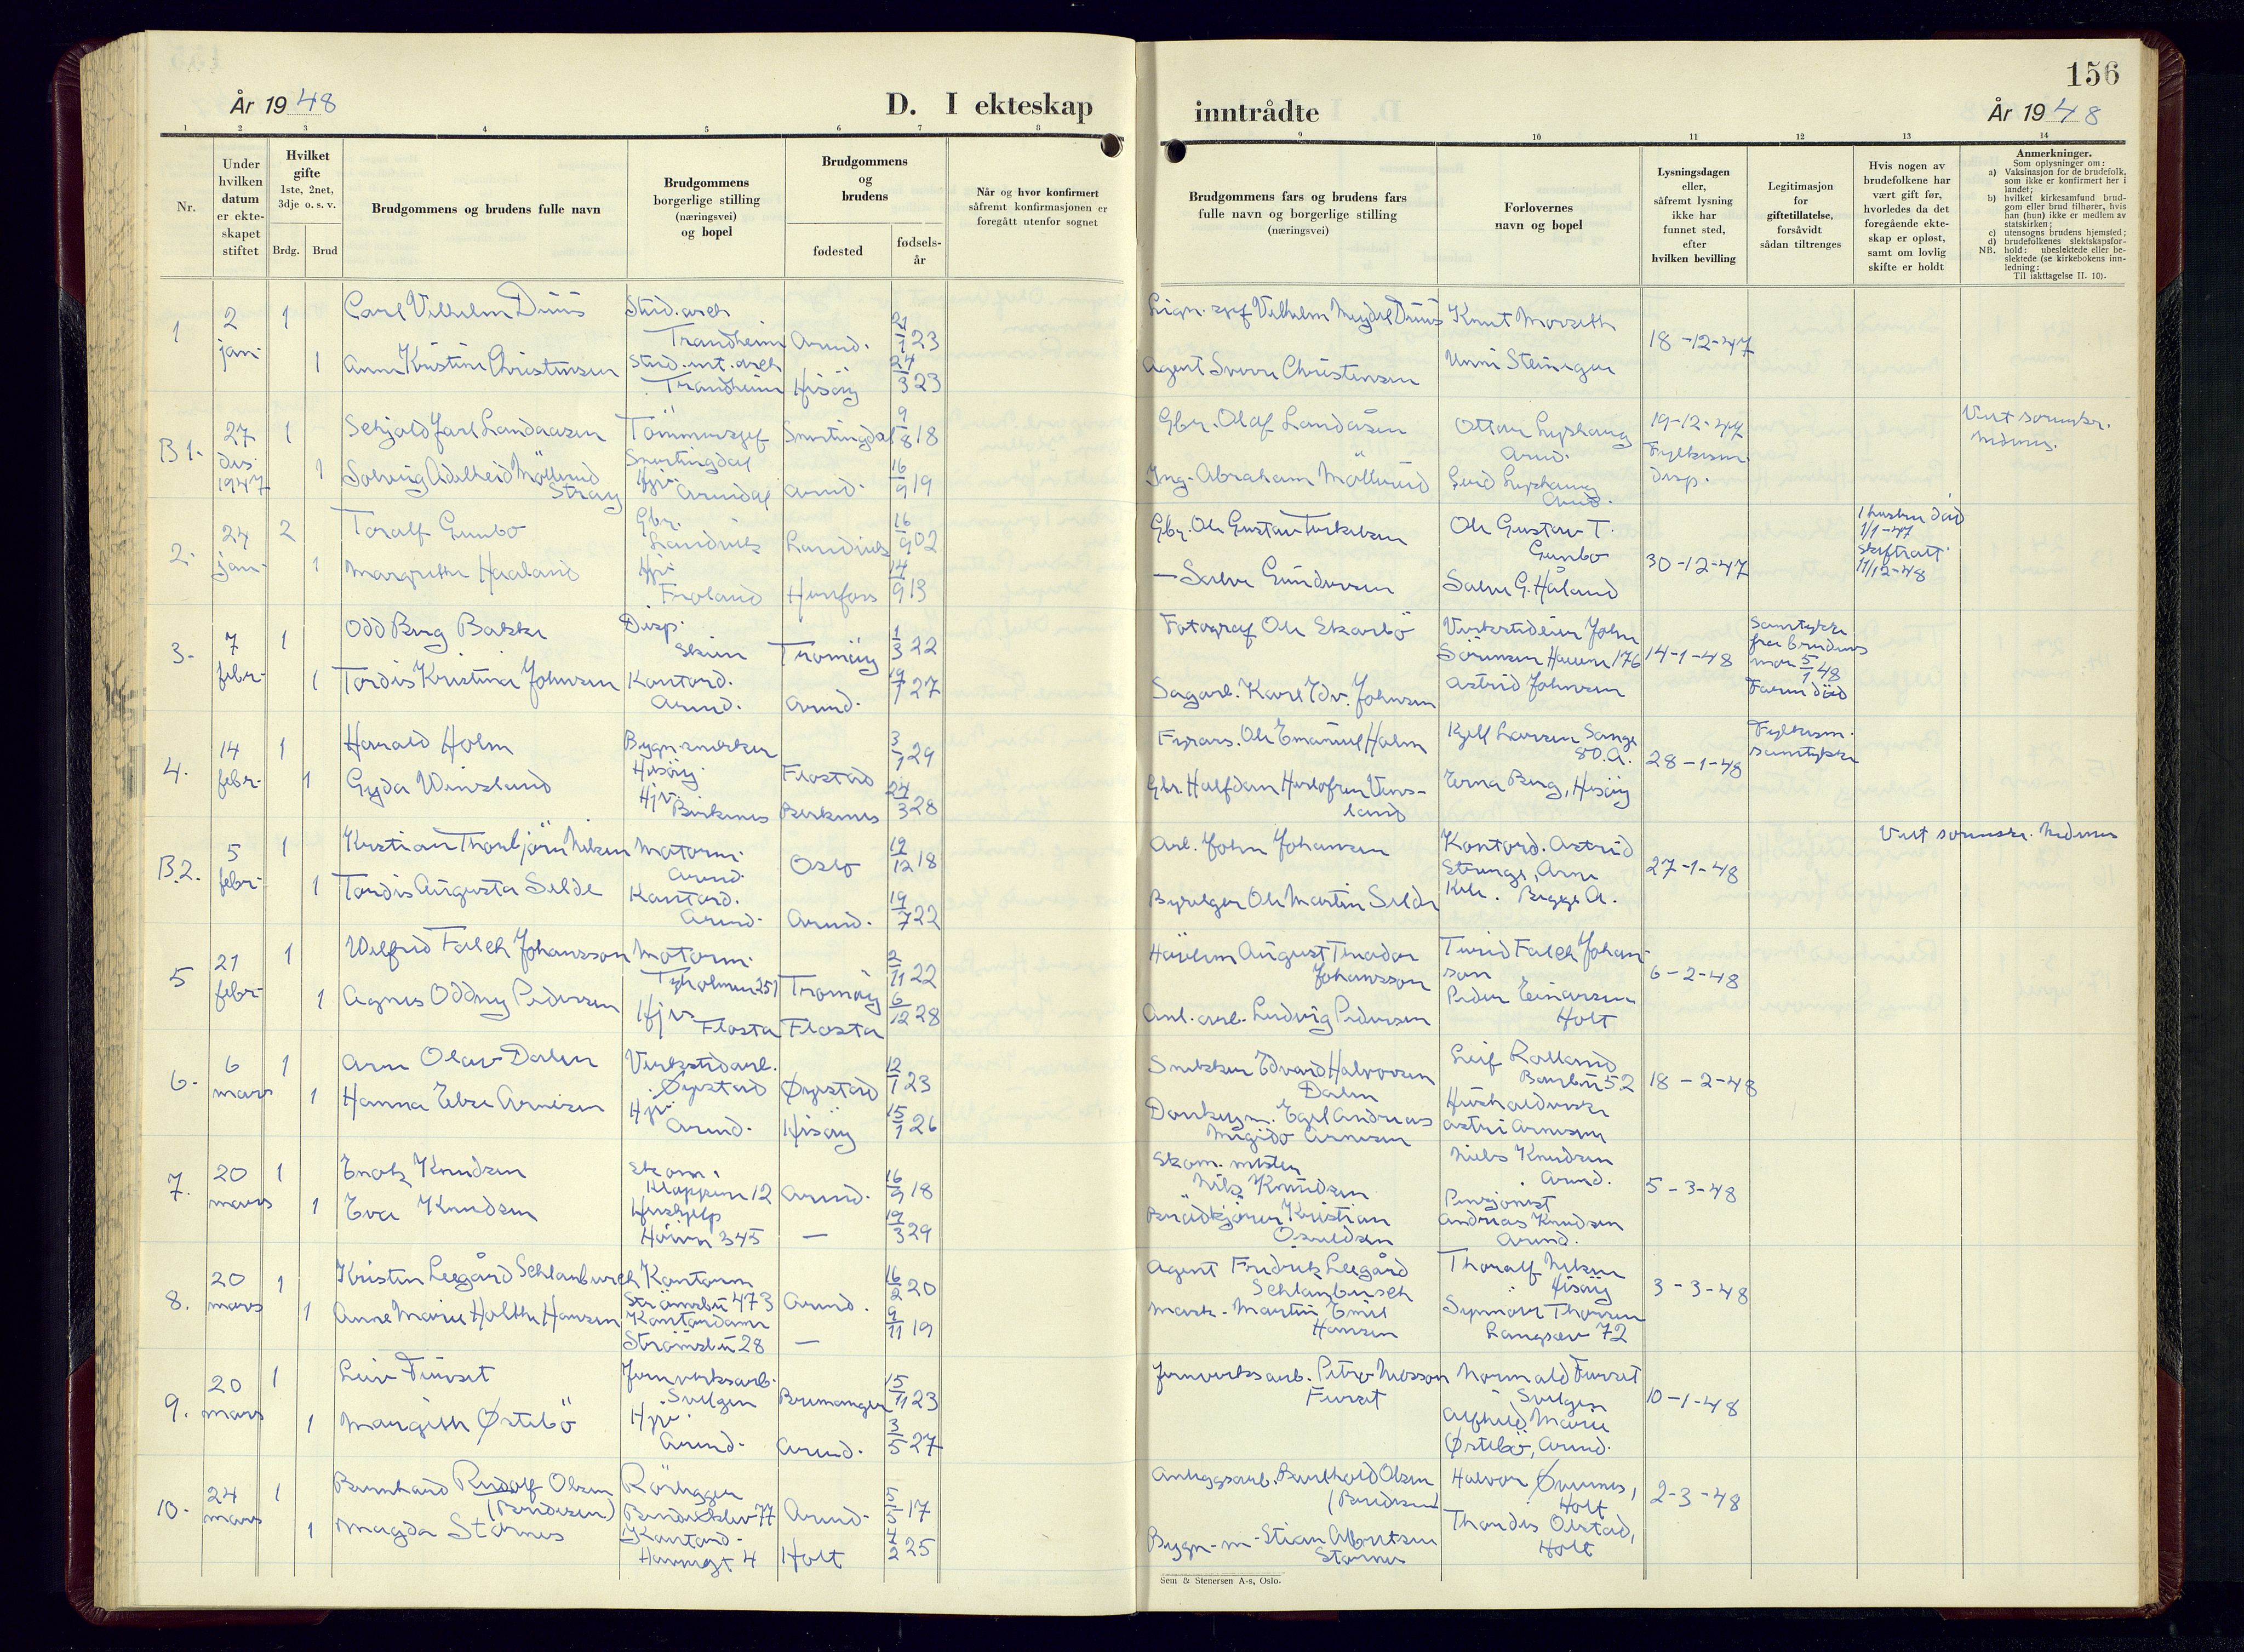 156
År 1948
D. I ekteskap
inntrådte
År 1948
1 2 3 4 5 6 7 8 9 10 11 12 13 14
Nr.
Under
hvilken
datum
er ekte-
skapet
stiftet
Hvilket
gifte
1ste, 2net,
3dje o. s. v.
Brdg. Brud
Brudgommens og brudens fulle navn
Brudgommens
borgerlige stilling
(næringsvei)
og bopel
Brudgommens
og
brudens
fødested
fødsels-
år
Når og hvor konfirmert
såfremt konfirmasjonen er
foregått utenfor sognet
Brudgommens fars og brudens fars
fulle navn og borgerlige stilling
(næringsvei)
Forlovernes
navn og bopel
Lysningsdagen
eller,
såfremt lysning
ikke har
funnet sted,
efter
hvilken bevilling
Legitimasjon
for
giftetillatelse,
forsåvidt
sådan tiltrenges
Hvis nogen av
brudefolkene har
vært gift før,
hvorledes da det
foregående ekte-
skap er opløst,
samt om lovlig
skifte er holdt
Anmerkninger.
Som oplysninger om:
a) Vaksinasjon for de brudefolk,
som ikke er konfirmert her i
landet;
b) hvilket kirkesamfund brud-
gom eller brud tilhører, hvis
han (hun) ikke er medlem av
statskirken;
c) utensogns brudens hjemsted;
d) brudefolkenes slektskapsfor-
hold: ubeslektede eller be-
slektede (se kirkebokens inn-
ledning:
NB.
Til iakttagelse II. 10).
1 2 jan. 1 Carl Vilhelm Duus Stud. arch Trondheim Arend. 21/1 23 Vilhelm Duus Knut Morseth 18-12-47
1 Anne Kristine Christensen Stud. int. arch Trondheim Hisøy 24/3 23 Agent Sverre Christensen Unni Steinegar
B1. 27 des. 1947 1 Jarl Landaasen Tömmersjef Snertingdal Snertingdal 9/8 18 Gbr. Olaf Landåsen Ottar Arend. 19-12-47 Fylkesm. disp.
1 Solveig Adelheid Möllerud Stray Hjv. Arendal Arend. 16/9 19 Ing. Abraham Möllerud Arend.
2. 24 jan. 2 Toralf Gumbo Gbr. Landvik Landvik 16/9 02 Gbr. Ole Gustav Terkelsen Ole Gustav T. Gumbo 30-12-47 1 hustru död 1/1-47 skifteatt. 11/12-48
1 Margrethe Haaland Hjv. Froland 14/9 13 — Salve Gundersen Salve G. Håland
3. 7 febr. 1 Odd Berg Bakke Disp. Skien Tromöy 1/3 22 Fotograf Ole Skarbö Verkstedeier John Sörensen 176 14-1-48 Samtykke fra brudens mor 5/1 48 Faren död
1 Tordis Kristine Johnsen Kontord. Arend. Arend. 19/1 27 Sagarb. Karl Edv. Johnsen Astrid Johnsen
4. 14 febr. 1 Harald Holm Bygn. snekker Hisöy Flostad 3/1 29 Fyrass. Ole Emanuel Holm Kjell Larsen 80. A. 28-1-48 Fylkesm. samtykke
1 Gyda Vinsland Hjv. Birkenes Birkenes 24/3 28 Gbr. Halfdan Herlofsen Vins- land Erna Berg, Hisöy
B.2. 5 febr. 1 Kristian Thorbjörn Nilsen Motorm. Arend. Oslo 19/12 18 Arb. John Johansen Kontord. Astrid 27-1-48
1 Tordis Augusta Selde Kontord. Arend. Arend. 19/7 22 Ole Martin Selde
5 21 febr. 1 Wilfrid Falch Johansson Motorm. Tyholmen 251 Tromöy 2/11 22 August Teodor Johansson Turid Falch Johan- son 6-2-48
1 Agnes Oddny Pedersen Hjv. Flosta Flosta 6/12 28 Anl. arb. Ludvig Pedersen Peder Einarsen Holt
6. 6 mars 1 Arne Olav Dalen Verkstedarb. Øyestad Øyestad 12/1 23 Snekker Edvard Halvorsen Dalen Leif Rolland Barbu 52 18-2-48
1 Hanna Elise Arnesen Hjv. Arend. Hisöy 15/1 26 Egil Andreas Arnesen Husholderske Astri Arnesen
7. 20 mars 1 Enok Knudsen Skom. Kloppene 12 Arend. 16/9 18 Skom. mester Nils Knudsen Niels Knudsen Arend. 5-3-48
1 Eva Knudsen Hushjelp 345 — 19/3 29 Brödkjörer Kristian Osvaldsen Pensjonist Andreas Knudsen Arend.
8. 20 mars 1 Kristen Leegård Schlanbusch Kontorm. Strömsbu 473 Arend. 16/2 20 Agent Fredrik Leegård Schlanbusch Thoralf Nilsen Hisöy 3-3-48
1 Anne Marie Holthe Hansen Kontordame Strömsbu 28 — 9/11 19 Mask. Martin Emil Hansen Synnöve Thorsen Langsæv 72
9. 20 mars 1 Leiv Furset Jernverksarb. Svelgen Bremanger 15/11 23 Jernverksarb. Petter Furset Normald Furset Svelgen 10-1-48
1 Margith Østebö Hjv. Arend. Arend. 3/5 27 Alfhild Marie Østebö, Arend.
10. 24 mars 1 Bernhard Rudolf Olsen (Bendiksen) Rörlegger Bendiksklev 77 Arend. 5/5 17 Anleggsarb. Berthold Olsen (Bendiksen) Halvor Holt 2-3-48
1 Magda Starnes Kontord. Havnegt 4 Holt 4/2 25 Bygn-m. Stian Albertsen Thordis Olstad, Holt
Sem & Stenersen A-s, Oslo.